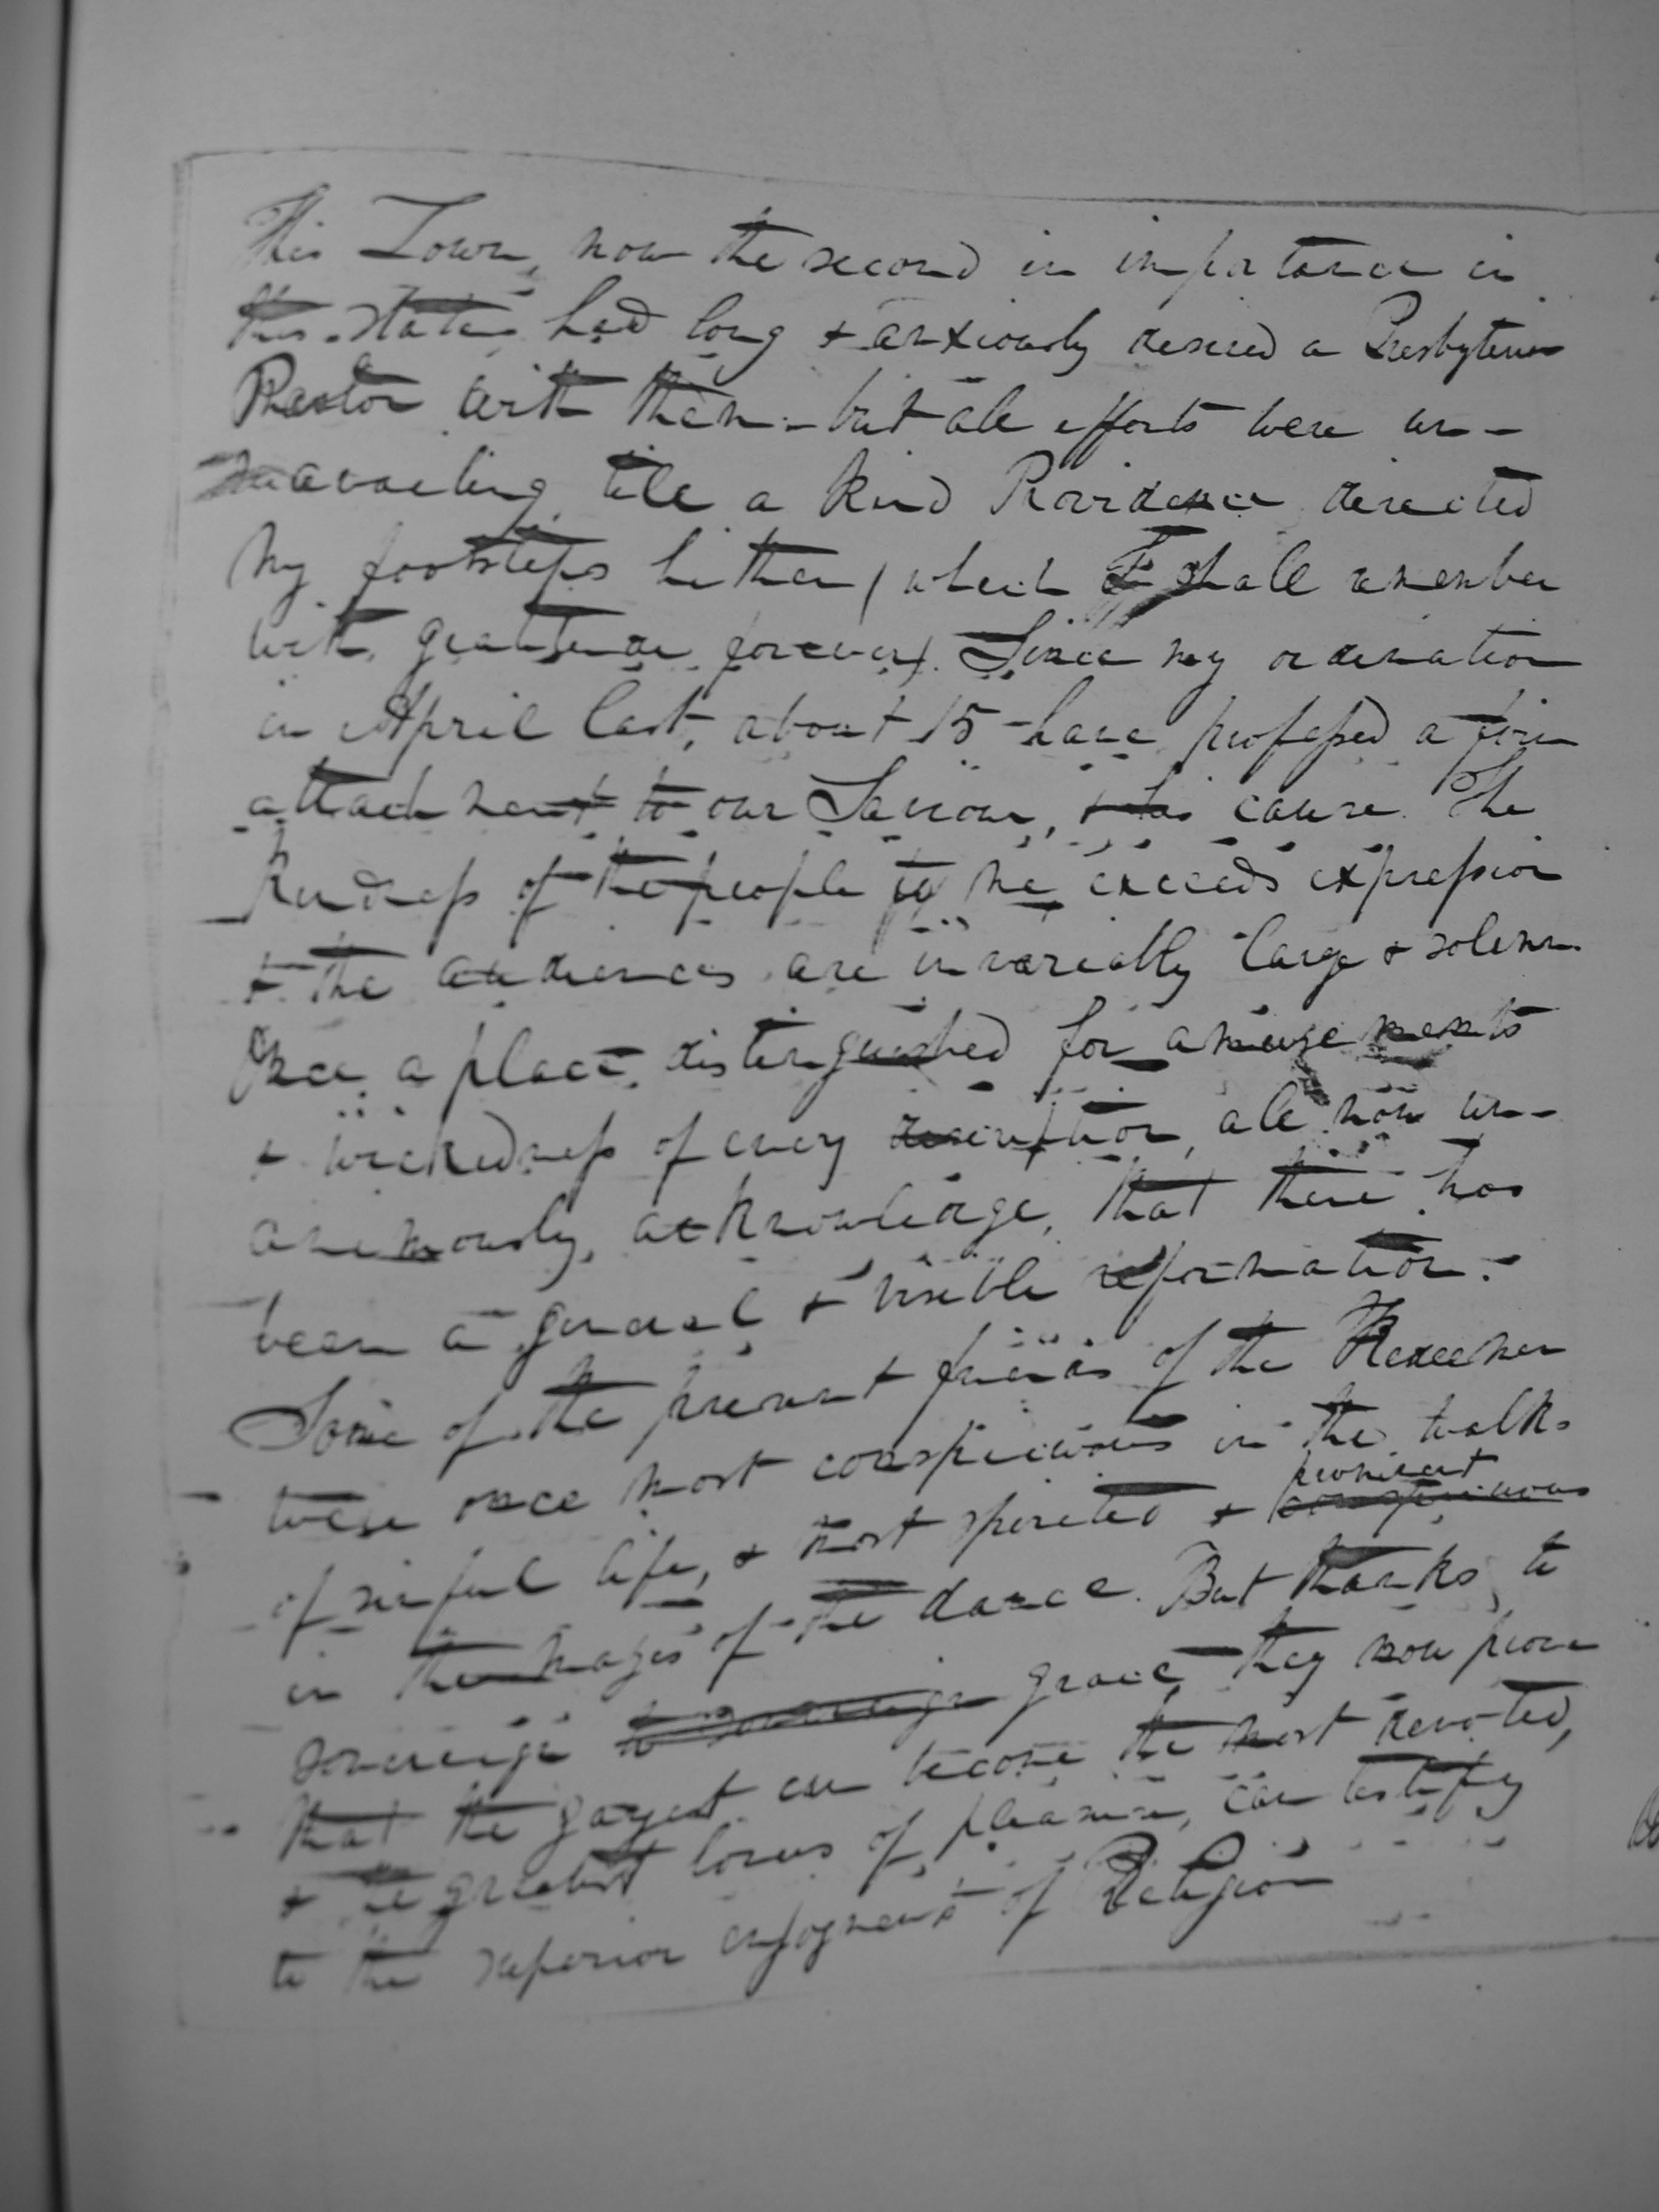 This Town, now the second in importance in
this State, had long & anxiously desired a Presbyterian
Pastor with them - but all efforts were un-
availing, till a kind Providence directed
my footsteps hither (which I shall remember
with gratitude forever). Since my ordination
in April last, about 15 have professed a firm
attachment to our Saviour, & his cause. The
kindness of the people to me exceeds expression
& the audiences are invariably large & solemn.
Once a place distinguished for amusements
& wickedness of every description, all now un-
animously, acknowledge, that there has
been a general & visible reformation. -
Some of the present friends of the Redeemer
were once most conspicuous in the walks
prominent
of sinful life, & most spirited & conspicuous
in the mazes of the dance. But thanks to
sovereign to sovereign grace they now prove
that the gayest can become the most devoted,
& the greatest lovers of pleasure, can testify
to the superior enjoyment of Religion